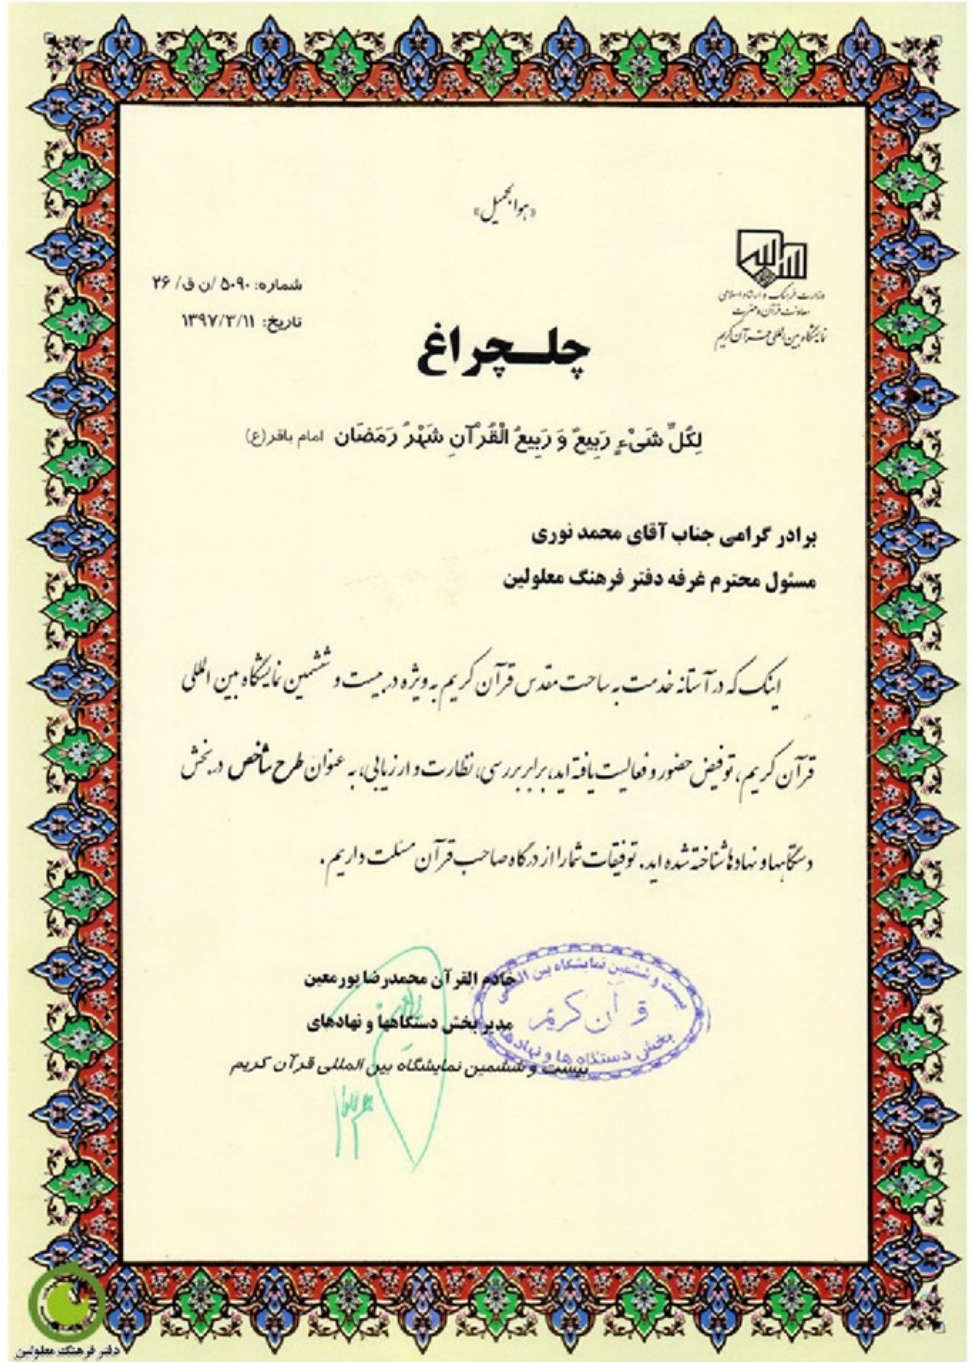 «هوالجمیل»
وزارت فرهنگ و ارشاد اسلامی
معاونت قرآن و عترت
نمایشگاه بین المللی قرآن کریم
شماره: ۵۰۹۰ /ن ق/ ۲۶
تاریخ: ۱۳۹۷/۳/۱۱
چلــچراغ
لِکُلِّ شَیْءٍ رَبِیعٌ وَ رَبِیعُ الْقُرْآنِ شَهْرُ رَمَضَان امام باقر(ع)
برادر گرامی جناب آقای محمد نوری
مسئول محترم غرفه دفتر فرهنگ معلولین
اینک که در آستانه خدمت به ساحت مقدس قرآن کریم به ویژه در بیست و ششمین نمایشگاه بین المللی
قرآن کریم، توفیض حضور و فعالیت یافته اید، برابر بررسی، نظارت و ارزیابی، به عنوان طرح شاخص در بخش
دستگاهها و نهادها شناخته شده اید. توفیقات شما را از درگاه صاحب قرآن مسئلت داریم.
خادم القرآن محمدرضا پورمعین
مدیر بخش دستگاهها و نهادهای
بیست و ششمین نمایشگاه بین المللی قرآن کریم
بیست و ششمین نمایشگاه بین المللی
قرآن کریم
بخش دستگاه ها و نهادها
دفتر فرهنگ معلولین